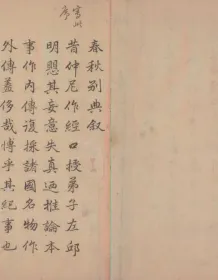 春秋别典叙
昔仲尼作經口授弟子左邱
明懼其妄意失真迺推論本
事作內傳復採諸國名物作
外傳蓋侈哉博乎其紀事也